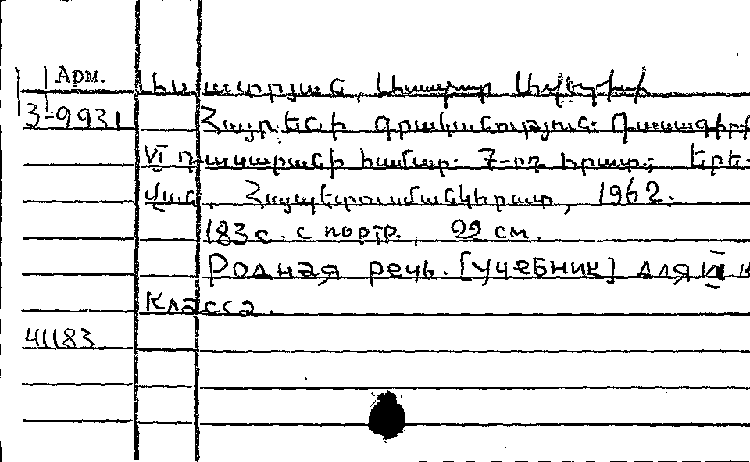 Арм.
3-9931
Հայրենի գրականություն: Դասագիրք
VI դասարանի համար: 7-րդ հրատ.: Երե-
վան, Հայպետուսմանկհրատ, 1962.
183 с. с портр., 22 см.
Родная речь. [Учебник] для VI
Класса.
41183